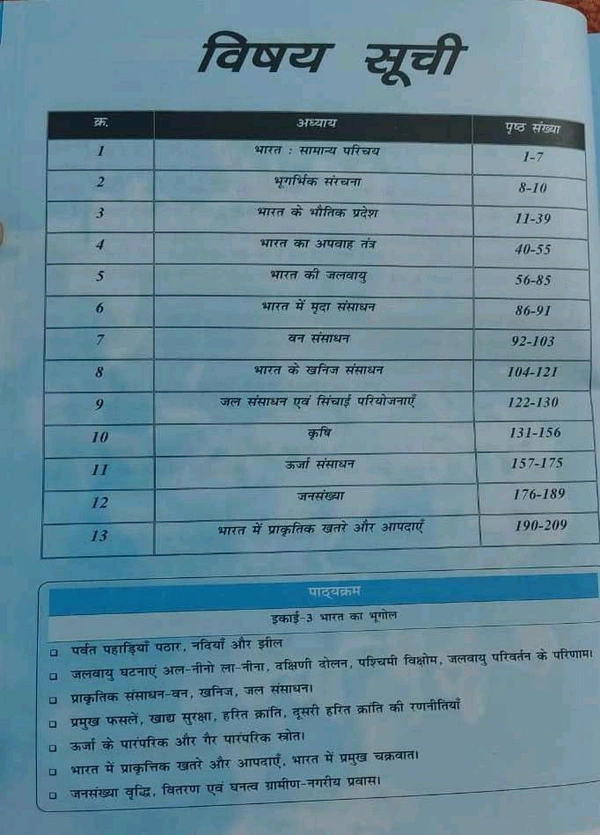 विषय सूची
क्र. अध्याय पृष्ठ संख्या
1 भारत : सामान्य परिचय 1-7
2 भूगर्भिक संरचना 8-10
3 भारत के भौतिक प्रदेश 11-39
4 भारत का अपवाह तंत्र 40-55
5 भारत की जलवायु 56-85
6 भारत में मृदा संसाधन 86-91
7 वन संसाधन 92-103
8 भारत के खनिज संसाधन 104-121
9 जल संसाधन एवं सिंचाई परियोजनाएँ 122-130
10 कृषि 131-156
11 ऊर्जा संसाधन 157-175
12 जनसंख्या 176-189
13 भारत में प्राकृतिक खतरे और आपदाएँ 190-209
पाठ्यक्रम
इकाई-3 भारत का भूगोल
पर्वत पहाड़ियाँ पठार, नदियाँ और झील
जलवायु घटनाएं अल-नीनो ला-नीना, दक्षिणी दोलन, पश्चिमी विक्षोम, जलवायु परिवर्तन के परिणाम।
प्राकृतिक संसाधन-वन, खनिज, जल संसाधन।
प्रमुख फसलें, खाद्य सुरक्षा, हरित क्रांति, दूसरी हरित क्रांति की रणनीतियाँ
ऊर्जा के पारंपरिक और गैर पारंपरिक स्त्रोत।
भारत में प्राकृत्तिक खतरे और आपदाएँ, भारत में प्रमुख चक्रवात।
जनसंख्या वृद्धि, वितरण एवं घनत्व ग्रामीण-नगरीय प्रवास।